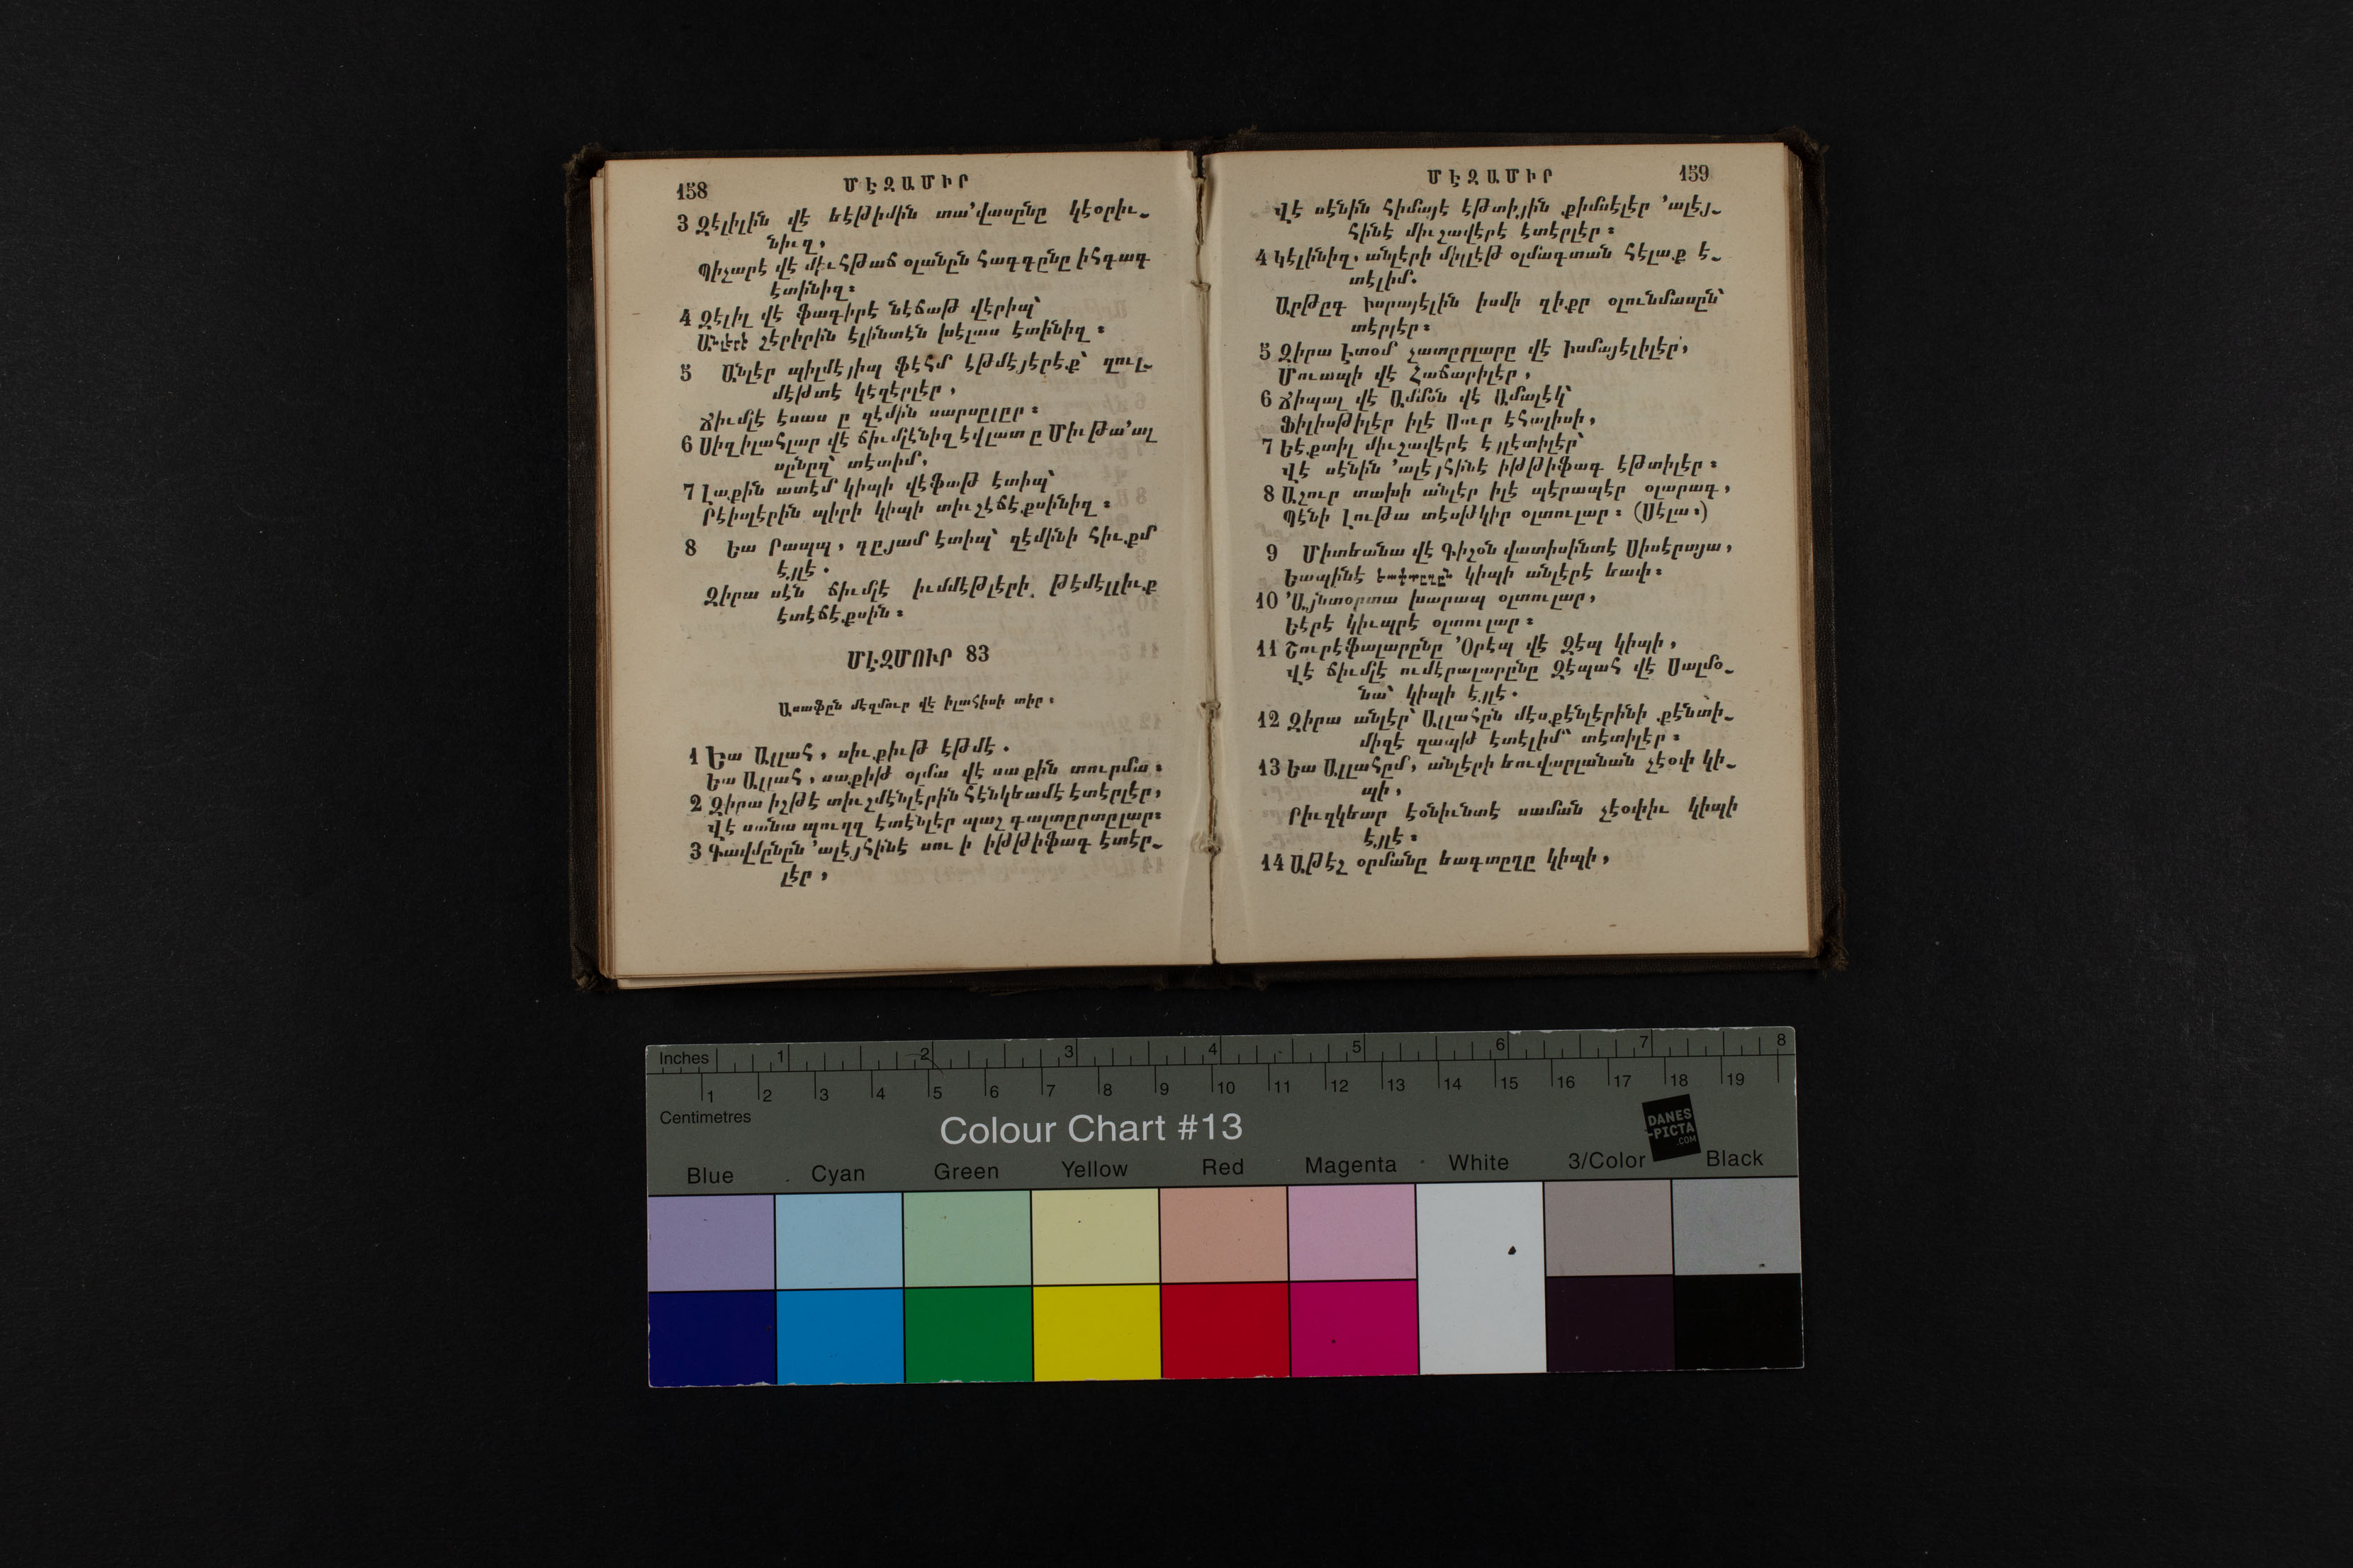 158 ՄԷԶԱՄԻՐ
3 Զէլիլին վէ եէթիմին տա՚վասընը կէօրիւ֊
նիւզ,
Պիչարէ վէ միւհթաճ օլանըն հագգընը իհգագ
էտինիզ։
4 Զէլիլ վէ ֆագիրէ նէճաթ վէրիպ՝
Անլերէ շէրիրին էլինտէն խէլաս էտինիզ։
5 Անլէր պիլմէյիպ ֆէհմ էթմէյէրէք՝ զուլ֊
մէթտէ կեզէրլէր,
Ճիւմլէ էսաս ը զէմին սարսըլըր։
6 Սիզ իլահլար վէ ճիւմլէնիզ էվլատ ը Միւթա՚ալ
սընըզ՝ տէտիմ,
7 Լաքին ատէմ կիպի վէֆաթ էտիպ՝
Րէիսլէրին պիրի կիպի տիւշէճէքսինիզ։
8 Եա Րապպ, գըյամ էտիպ՝ զէմինի հիւքմ
էյլէ.
Զիրա սէն ճիւմլէ իւմմէթլէրի թէմէլլիւք
էտէճէքսին։
ՄԷԶՄՈՒՐ 83
Ասաֆըն մէզմուր վէ իլահիսի տիր։
1 Եա Ալլահ, սիւքիւթ էթմէ.
Եա Ալլահ, սաքիթ օլմա վէ սաքին տուրմա։
2 Զիրա իշթէ տիւշմէնլէրին հէնկեամէ էտէրլէր,
Վէ սանա պուղզ էտէնլէր պաշ գալտըրտըլար։
3 Գավմընըն ՚ալէյհինէ սու ի իթթիֆագ էտէր֊
լէր,
ՄԷԶԱՄԻՐ 159
Վէ սէնին հիմայէ էթտիյին քիմսէլէր ՚ալէյ֊
հինէ միւշավէրէ էտէրլէր։
4 Կէլինիզ, անլերի միլլէթ օլմագտան հէլաք է֊
տէլիմ.
Արթըգ Իսրայէլին իսմի զիքր օլունմասըն՝
տէրլէր։
5 Զիրա Էտօմ չատըրլարը վէ Իսմայելիլէր,
Մուապի վէ Հաճարիլէր,
6 Ճիպալ վէ Ամմոն վէ Ամալէկ՝
Ֆիլիսթիլէր իլէ Սուր էհալիսի,
7 Եէքտիլ միւշավէրէ էյլէտիլէր՝
Վէ սէնին ՚ալէյհինէ իթթիֆագ էթտիլէր։
8 Աշուր տախի անլէր իլէ պէրապէր օլարագ,
Պէնի Լութա տէսթկիր օլտուլար։ (Սէլա։)
9 Միտեանա վէ Գիշօն վատիսինտէ Սիսէրայա,
Եապինէ եափտըղըն կիպի անլէրէ եափ։
10 ՚Այնտօրտա խարապ օլտուլար,
Եէրէ կիւպրէ օլտուլար։
11 Շուրէֆալարընը ՚Օրէպ վէ Զէպ կիպի,
Վէ ճիւմլէ ումէրալարընը Զէպահ վէ Սալմօ֊
նա՝ կիպի էյլէ.
12 Զիրա անլէր՝ Ալլահըն մէսքէնլէրինի քէնտի֊
միզէ զապթ էտէլիմ՝ տէտիլէր։
13 Եա Ալլահըմ, անլէրի եուվարլանան չէօփ կի֊
պի,
Րիւզկեար էօնիւնտէ սաման չէօփիւ կիպի
էյլէ։
14 Աթէշ օրմանը եագտըղը կիպի,
Inches 1 2 3 4 5 6 7 8
1 2 3 4 5 6 7 8 9 10 11 12 13 14 15 16 17 18 19
Centimetres
Colour Chart #13
DANES
-PICTA
.COM
Blue Cyan Green Yellow Red Magenta White 3/Color Black